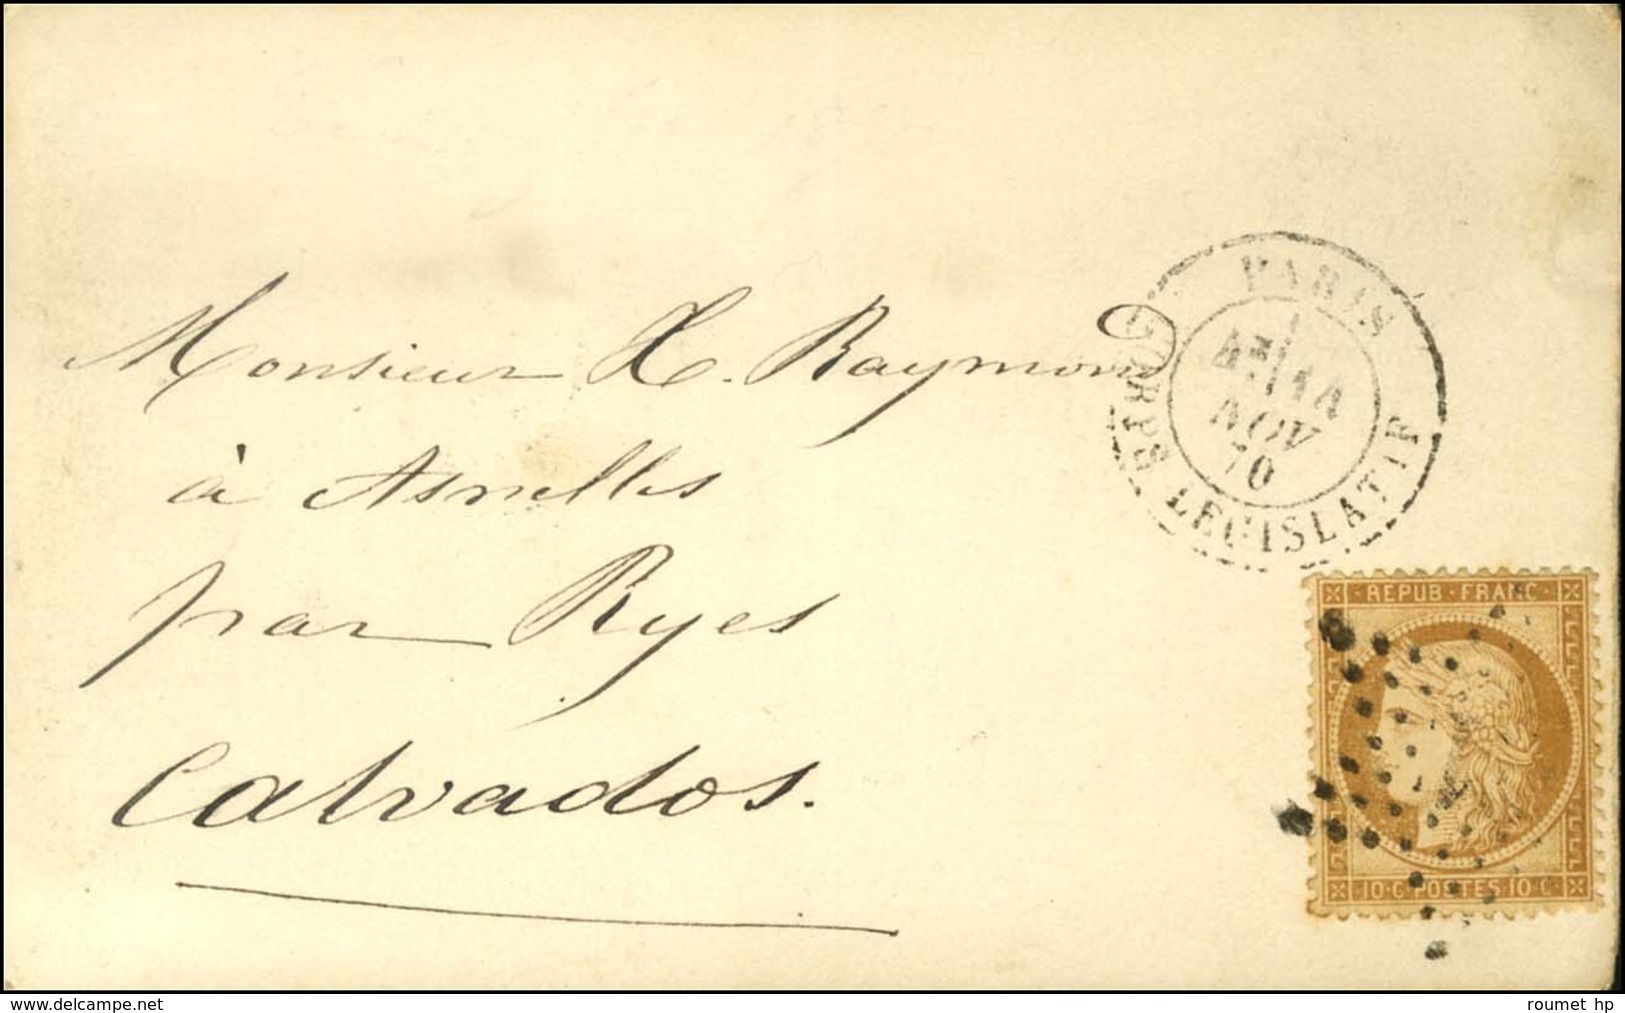 Monsieur H. Raymond
à Asnelles
par Ryes
Calvados.
PARIS
NOV
70
CORPS LEGISLATIF
REPUB · FRANC ·
10 · C · POSTES · 10 · C ·
www.delcampe.net
roumet hp